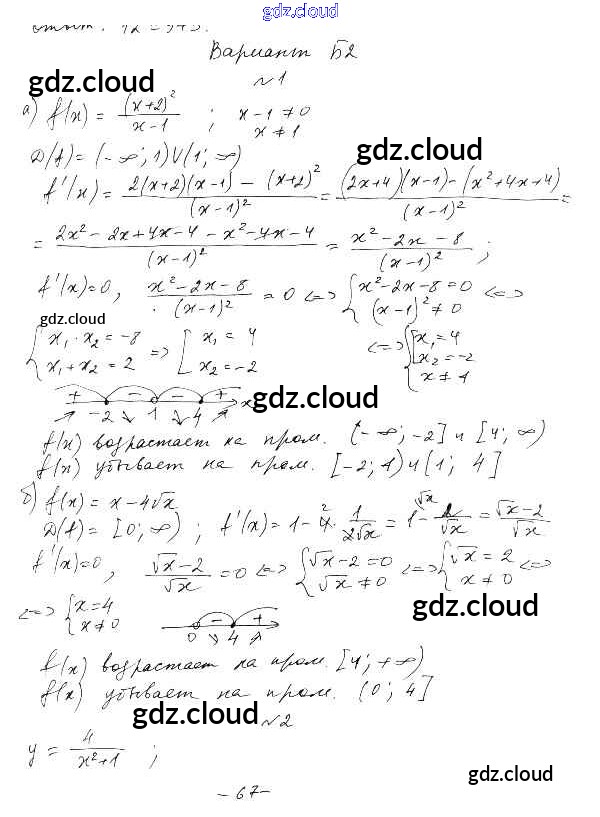 gdz.cloud
Вариант Б2
gdz.cloud
№1
а) f(x) = (x+2)² / (x-1) ; x-1 ≠ 0
x ≠ 1
gdz.cloud
D(f) = (-∞; 1) ∪ (1; ∞)
f'(x) = (2(x+2)(x-1) - (x+2)²) / (x-1)² = ((2x+4)(x-1) - (x²+4x+4)) / (x-1)² =
= (2x² - 2x + 4x - 4 - x² - 4x - 4) / (x-1)² = (x² - 2x - 8) / (x-1)² ;
gdz.cloud
f'(x)=0, (x² - 2x - 8) / (x-1)² = 0 <=> { x² - 2x - 8 = 0 <=>
(x-1)² ≠ 0
gdz.cloud
{ x₁ · x₂ = -8 => [ x₁ = 4 <=> { [ x₁ = 4
x₁ + x₂ = 2 x₂ = -2 x₂ = -2
x ≠ 1
+ - - + x
-2 1 4
gdz.cloud
f(x) возрастает на пром. (-∞; -2] и [4; ∞)
f(x) убывает на пром. [-2; 1) и (1; 4]
б) f(x) = x - 4√x
D(f) = [0; ∞) ; f'(x) = 1 - 4 · 1 / (2√x) = 1 - 2 / √x = (√x - 2) / √x
f'(x)=0, (√x - 2) / √x = 0 <=> { √x - 2 = 0 <=> { √x = 2 <=>
√x ≠ 0 x ≠ 0
gdz.cloud
<=> { x = 4
x ≠ 0
- +
0 4
gdz.cloud
f(x) возрастает на пром. [4; +∞)
f(x) убывает на пром. (0; 4]
gdz.cloud
№2
y = 4 / (x²+1) ;
gdz.cloud
- 67 -